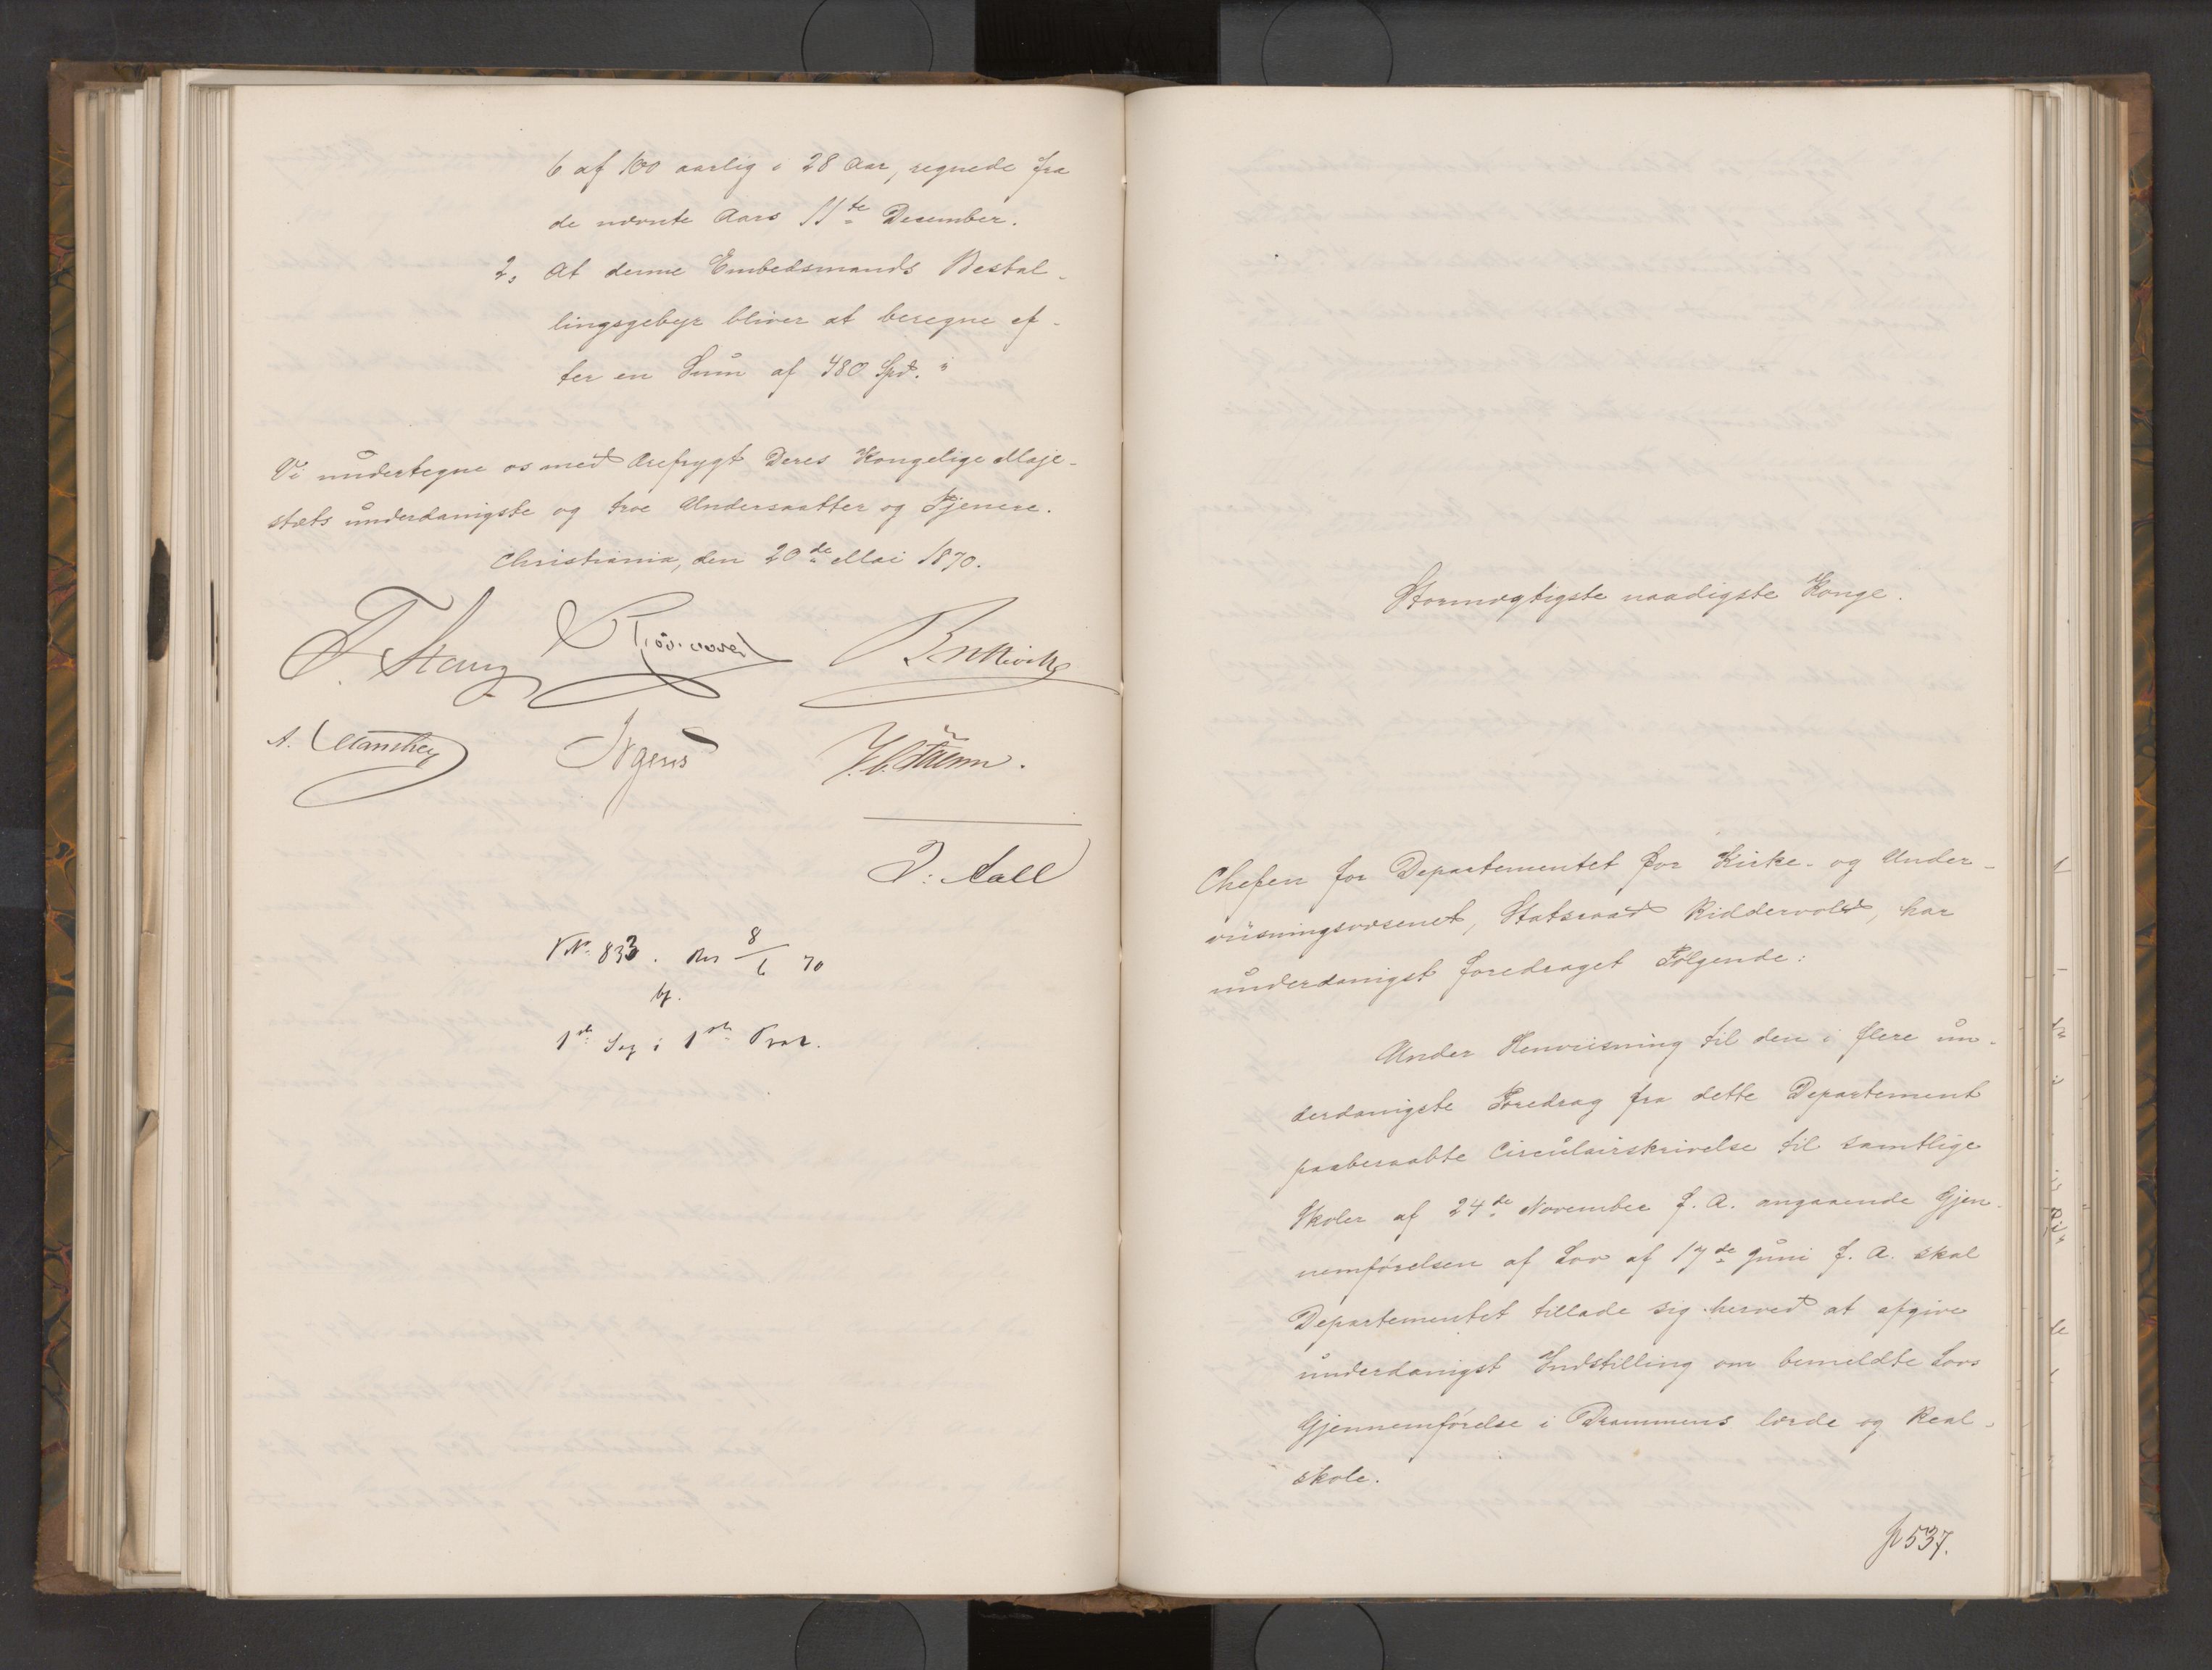 6 af 100 aarlig i 28 Aar, regnede fra
de nævnte Aars 11te December.
2, At denne Embedsmands Bestal-
lingsgebyr bliver at beregne ef-
ter en Sum af 480 Spd."
Vi undertegne os med Ærefrygt Deres Kongelige Maje-
stæts underdanigste og troe Undersaatter og Tjenere.
Christiania, den 20de Mai 1870.
F. Stang
A.
N. 833. Res 8/6 70
bf.
1ste Sag i 1ste
J. Aall
Stormægtigste naadigste Konge.
Chefen for Departementet for Kirke- og Under-
viisningsvæsenet, Statsraad Riddervold, har
underdanigst foredraget Følgende:
Under Henviisning til den i flere un-
derdanigste Foredrag fra dette Departement
paaberaabte Circulairskrivelse til samtlige
Skoler af 24de November f. A. angaaende Gjen-
nemførelsen af Lov af 17de Juni f. A. skal
Departementet tillade sig herved at afgive
underdanigst Indstilling om bemeldte Lovs
Gjennemførelse i Drammens lærde og Real-
skole.
p 537.